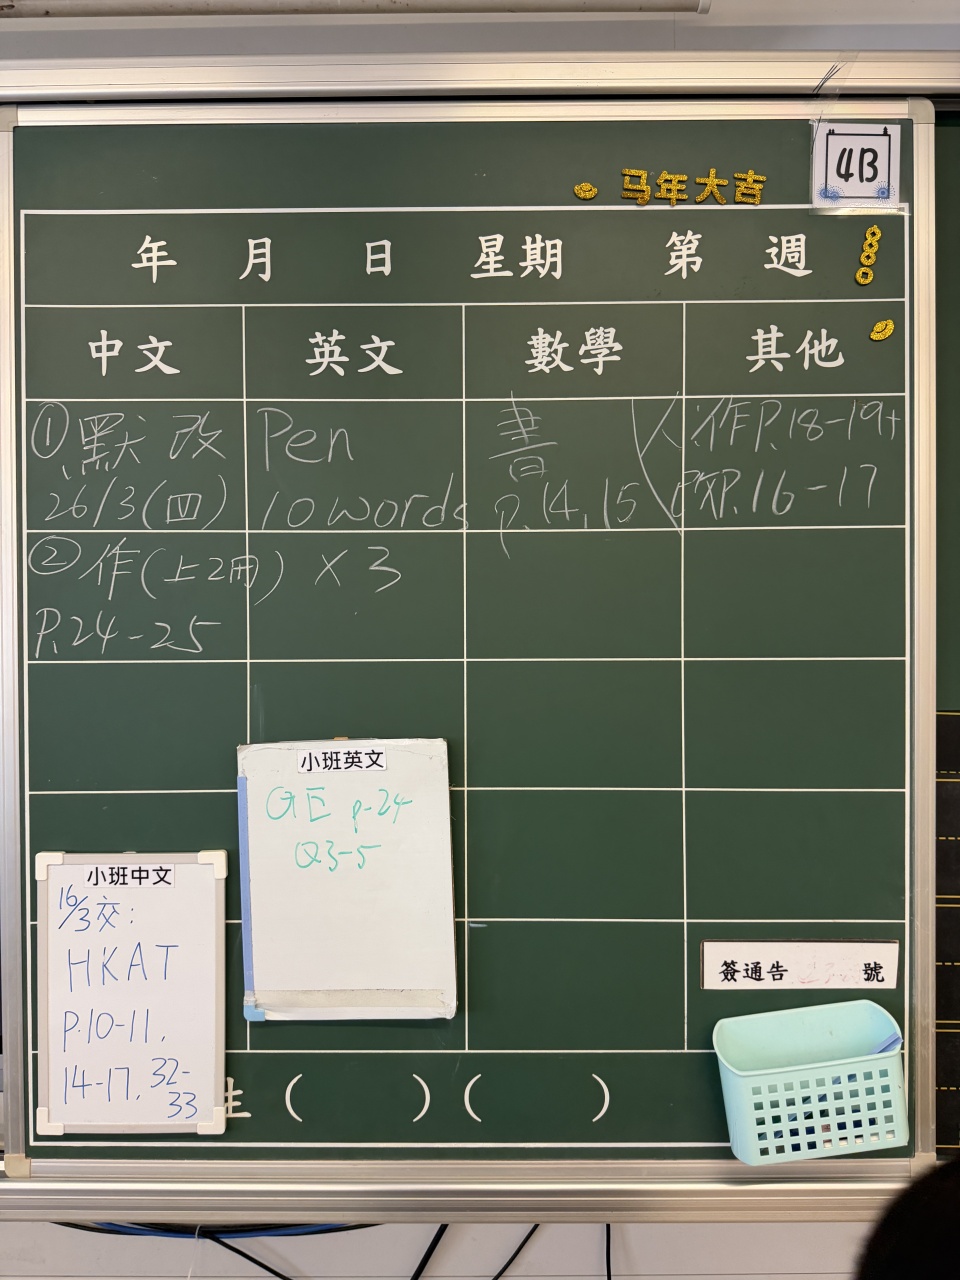 4B
马年大吉
年 月 日 星期 第 週
中文 英文 數學 其他
①默改
26/3(四)
②作(上2冊)
P.24-25
Pen
10 words
×3
書
p.14,15
人.作P.18-19+
P.16-17
小班英文
GE p.24
Q3-5
小班中文
16/3交:
HKAT
P.10-11,
14-17, 32-
33
簽通告 號
生 ( ) ( )